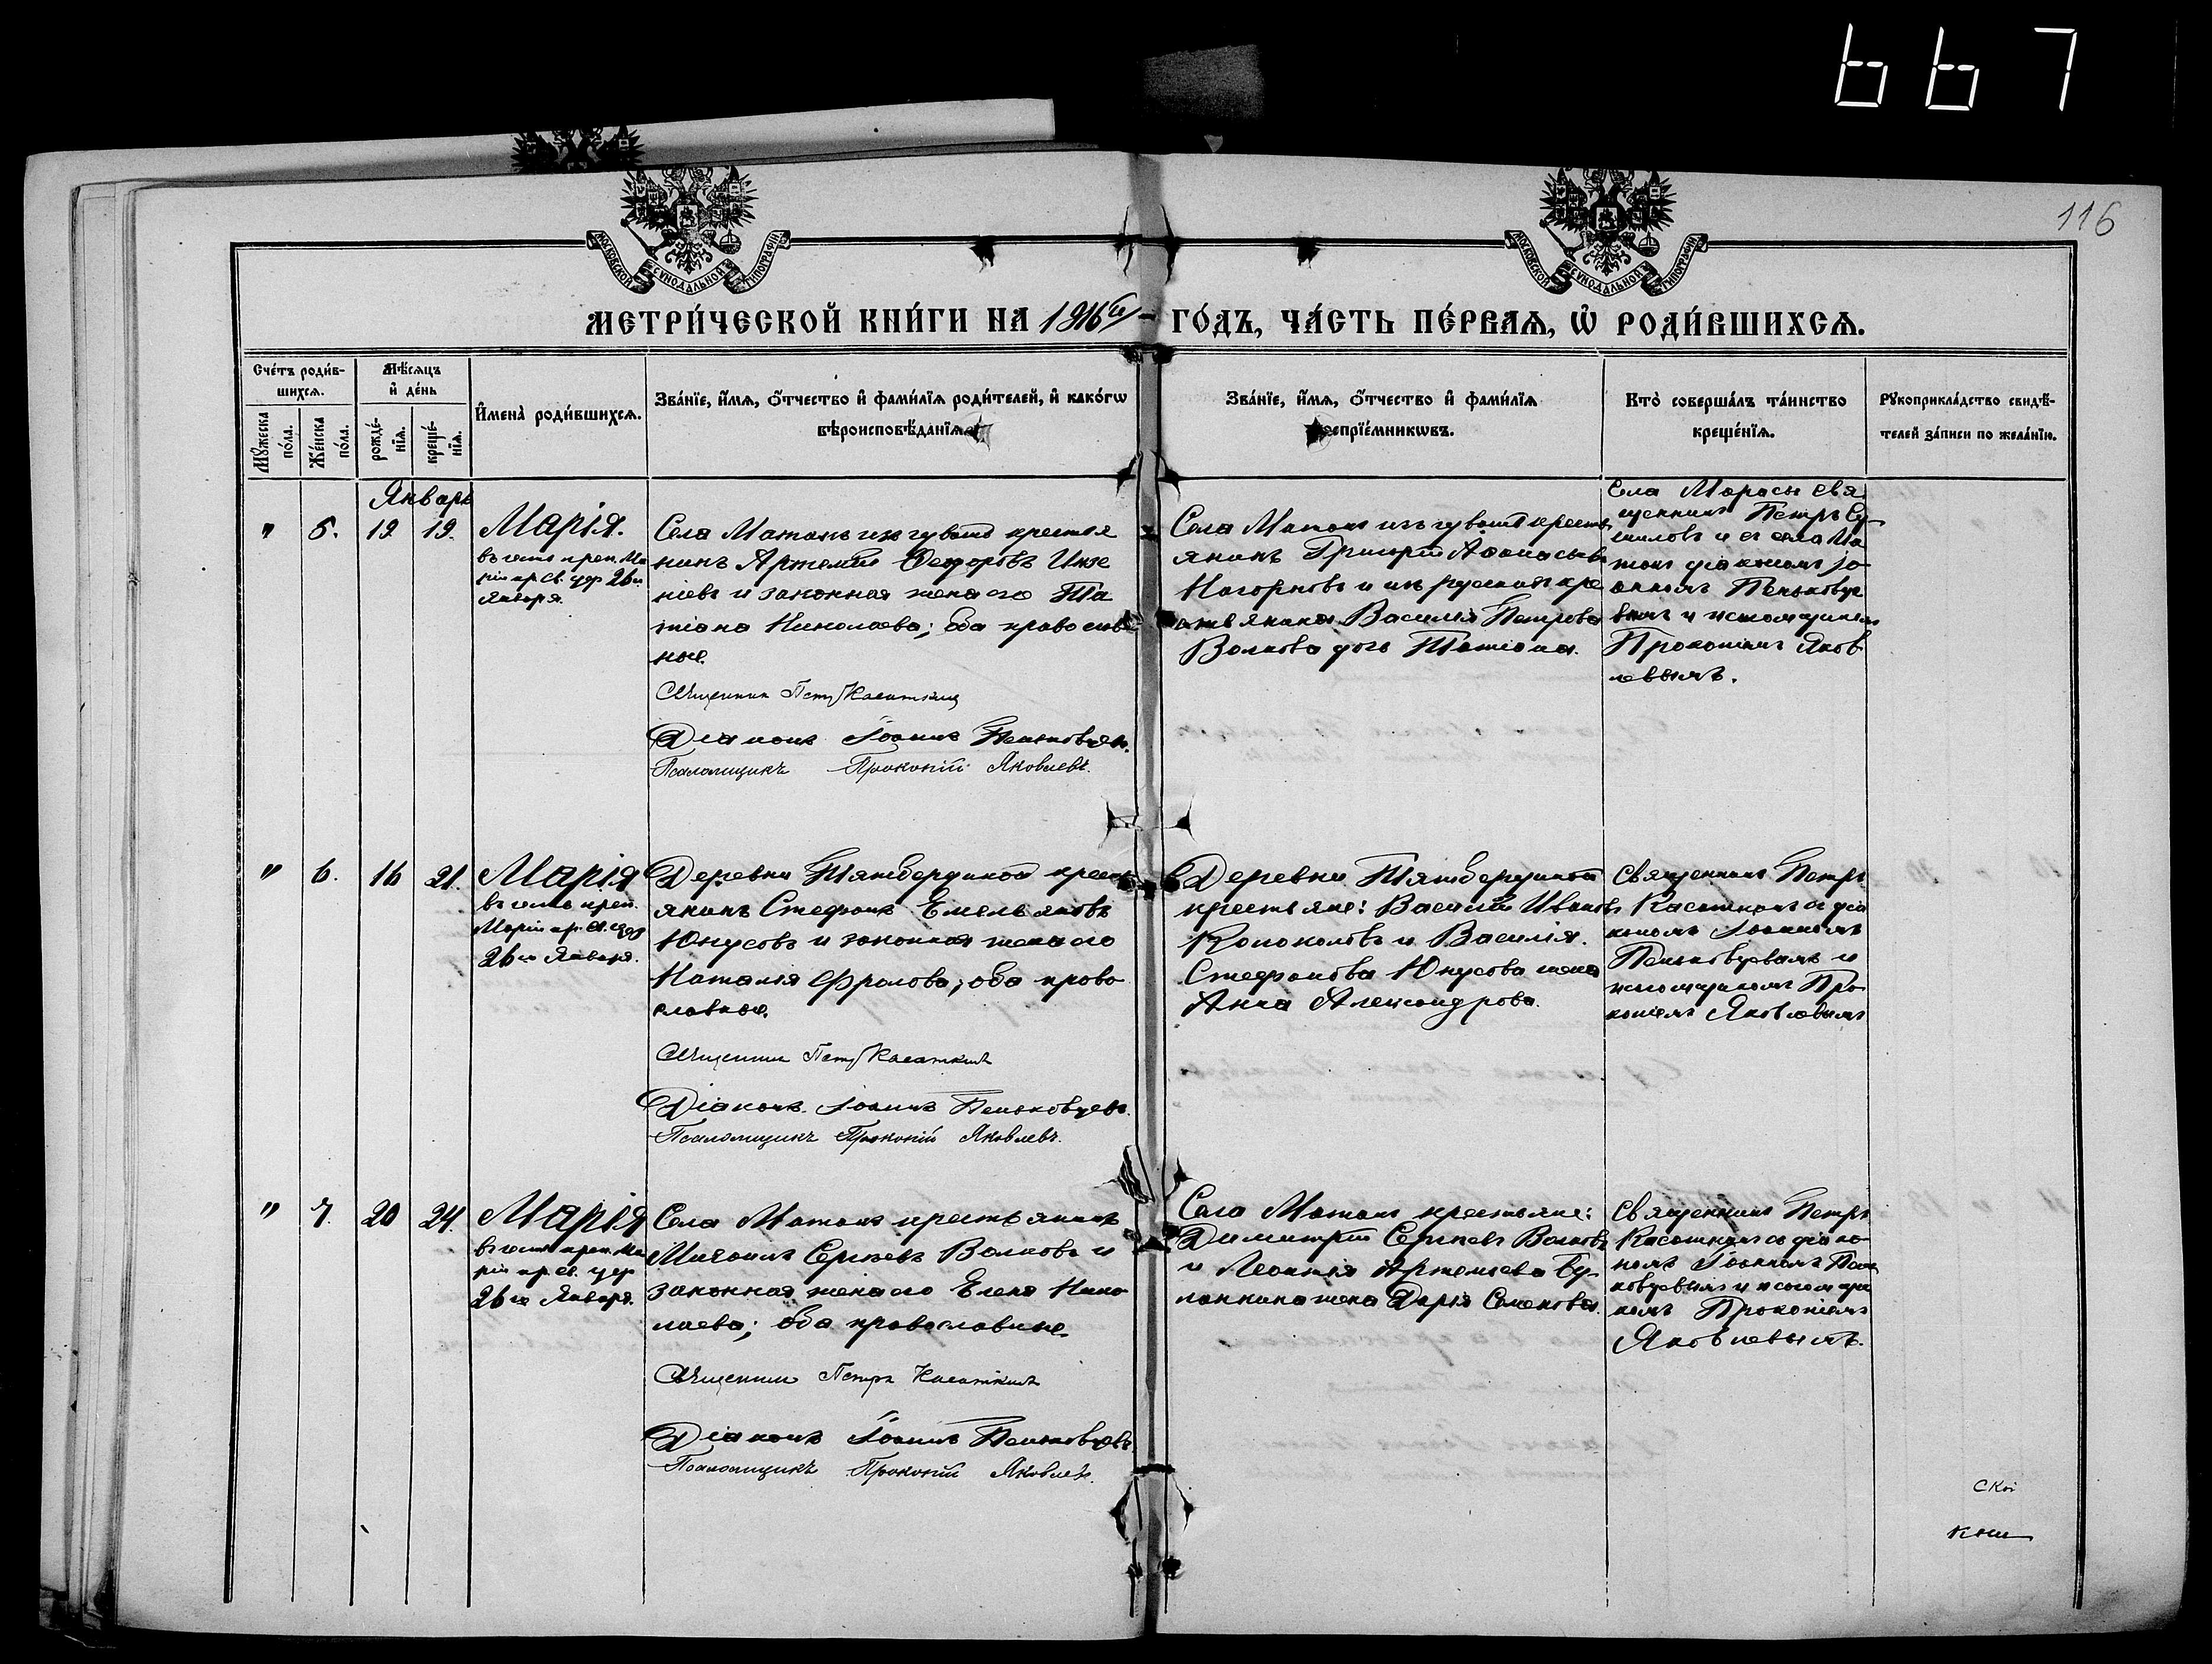 667
116
МОСКОВСКОЙ СѴНОДАЛЬНОЙ ТИПОГРАФІИ
МОСКОВСКОЙ СѴНОДАЛЬНОЙ ТИПОГРАФІИ
МЕТРИ́ЧЕСКОЙ КНИ́ГИ НА 1916й ГО́ДЪ, ЧА́СТЬ ПЕ́РВАѦ, Ѡ҆ РОДИ́ВШИХСѦ.
Сче́тъ роди́в-
шихсѧ.
Мꙋ́жеска
по́ла.
Же́нска
по́ла.
Мѣ́сѧцъ
и҆ де́нь
рожде́-
нїѧ.
креще́-
нїѧ.
И҆мена̀ роди́вшихсѧ.
Зва́нїе, и҆́мѧ, ѻ҆́тчество и҆ фами́лїѧ роди́телей, и҆ како́гѡ
вѣроисповѣ́данїѧ
Зва́нїе, и҆́мѧ, ѻ҆́тчество и҆ фами́лїѧ
епрїе́мникѡвъ.
Кто̀ соверша́лъ та́инство
креще́нїѧ.
Рꙋкоприкла́дство свидѣ́-
телей за́писи по жела́нїю.
Январь
" 5. 12 19. Марія.
въ честь преп. Ма
ріи пр. св. цер 26го
Января.
Села Матакъ изъ чувашъ крестья
нинъ Артемій Ѳедоровъ
и законная жена его Та
тіана Николаева; оба православ
ные.
Священникъ Петръ Касаткинъ
Діаконъ Іоаннъ Пеньковцевъ.
Псаломщикъ Прокопій Яковлевъ.
Села Матакъ изъ чувашъ кресть
янинъ Григорій Аѳанасьевъ
Нагорновъ и изъ русскихъ кре
стьянина Василія Петрова
Волкова дочь Татіана.
Села свя
щенникъ Петръ
и съ села Ма
такъ діакономъ Іо
анномъ Пеньковце
вымъ и псаломщикомъ
Прокопіемъ Яков
левымъ.
" 6. 16 21. Марія
въ честь преп.
Маріи пр. св. цер
26го Января.
Деревни крест
янинъ Стефанъ Емельяновъ
Юнусовъ и законная жена его
Наталія Фролова; оба право
славные.
Священникъ Петръ Касаткинъ
Діаконъ Іоаннъ Пеньковцевъ.
Псаломщикъ Прокопій Яковлевъ.
Деревни
крестьяне: Василій Ивановъ
Колоколовъ и Василія
Стефанова Юнусова жена
Анна Александрова.
Священникъ Петръ
Касаткинъ съ діа
кономъ Іоанномъ
Пеньковцевымъ и
псаломщикомъ Про
копіемъ Яковлевымъ
" 7. 20 24. Марія
въ честь преп. Ма
ріи пр. св. цер
26го Января.
Села Матакъ крестьянинъ
Михаилъ Сергѣевъ Волковъ и
законная жена его Елена Нико
лаева; оба православные.
Священникъ Петръ Касаткинъ
Діаконъ Іоаннъ Пеньковцевъ.
Псаломщикъ Прокопій Яковлевъ.
Села Матакъ крестьяне:
Димитрій Сергѣевъ Волковъ
и Леонтія Артемьева Бу-
ланкина жена Дарія Семенова.
Священникъ Петръ
Касаткинъ съ діако
номъ Іоанномъ Пень
ковцевымъ и псаломщи
комъ Прокопіемъ
Яковлевымъ.